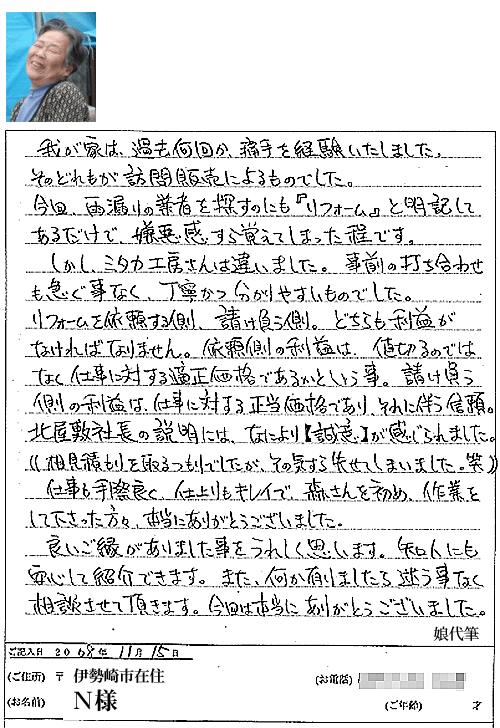 我が家は、過去何回か、痛手を経験いたしました。
そのどれもが訪問販売によるものでした。
今回、雨漏りの業者を探すのにも『リフォーム』と明記して
あるだけで、嫌悪感すら覚えてしまった程です。
しかし、ミタカ工房さんは違いました。事前の打ち合わせ
も急ぐ事なく、丁寧かつ分かりやすいものでした。
リフォームを依頼する側、請け負う側。どちらも利益が
なければなりません。依頼側の利益は、値切るのでは
なく仕事に対する適正価格であるかという事。請け負う
側の利益は、仕事に対する正当価格であり、それに伴う信頼。
北屋敷社長の説明には、なにより【誠意】が感じられました。
((相見積もりを取るつもりでしたが、その気すら失せてしまいました。笑))
仕事も手際良く、仕上りもキレイで、森さんを初め、作業を
して下さった方々、本当にありがとうございました。
良いご縁がありました事をうれしく思います。知人にも
安心して紹介できます。また、何か有りましたら迷う事なく
相談させて頂きます。今回は本当にありがとうございました。
娘代筆
ご記入日 2008年 11月 15日
(ご住所) 〒 伊勢崎市在住 (お電話)
(お名前) N様 (ご年齢) 才